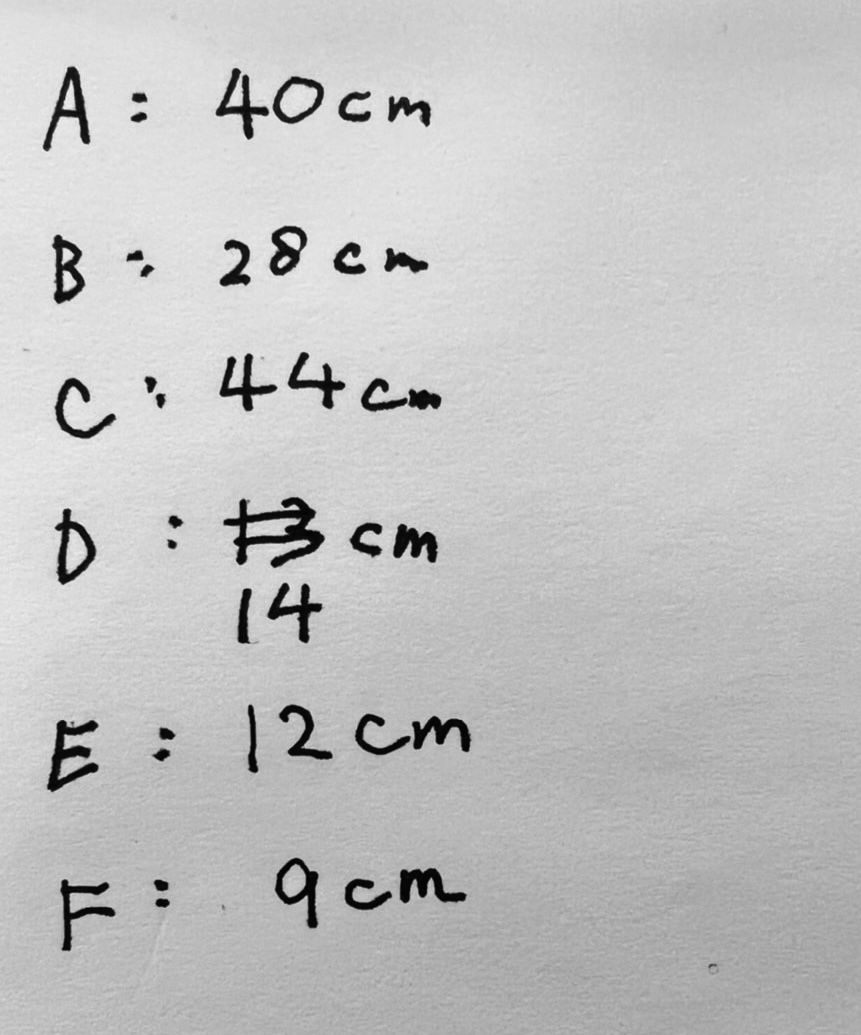 A: 40cm
B: 28cm
C: 44cm
D: 13 cm
14
E: 12cm
F: 9cm